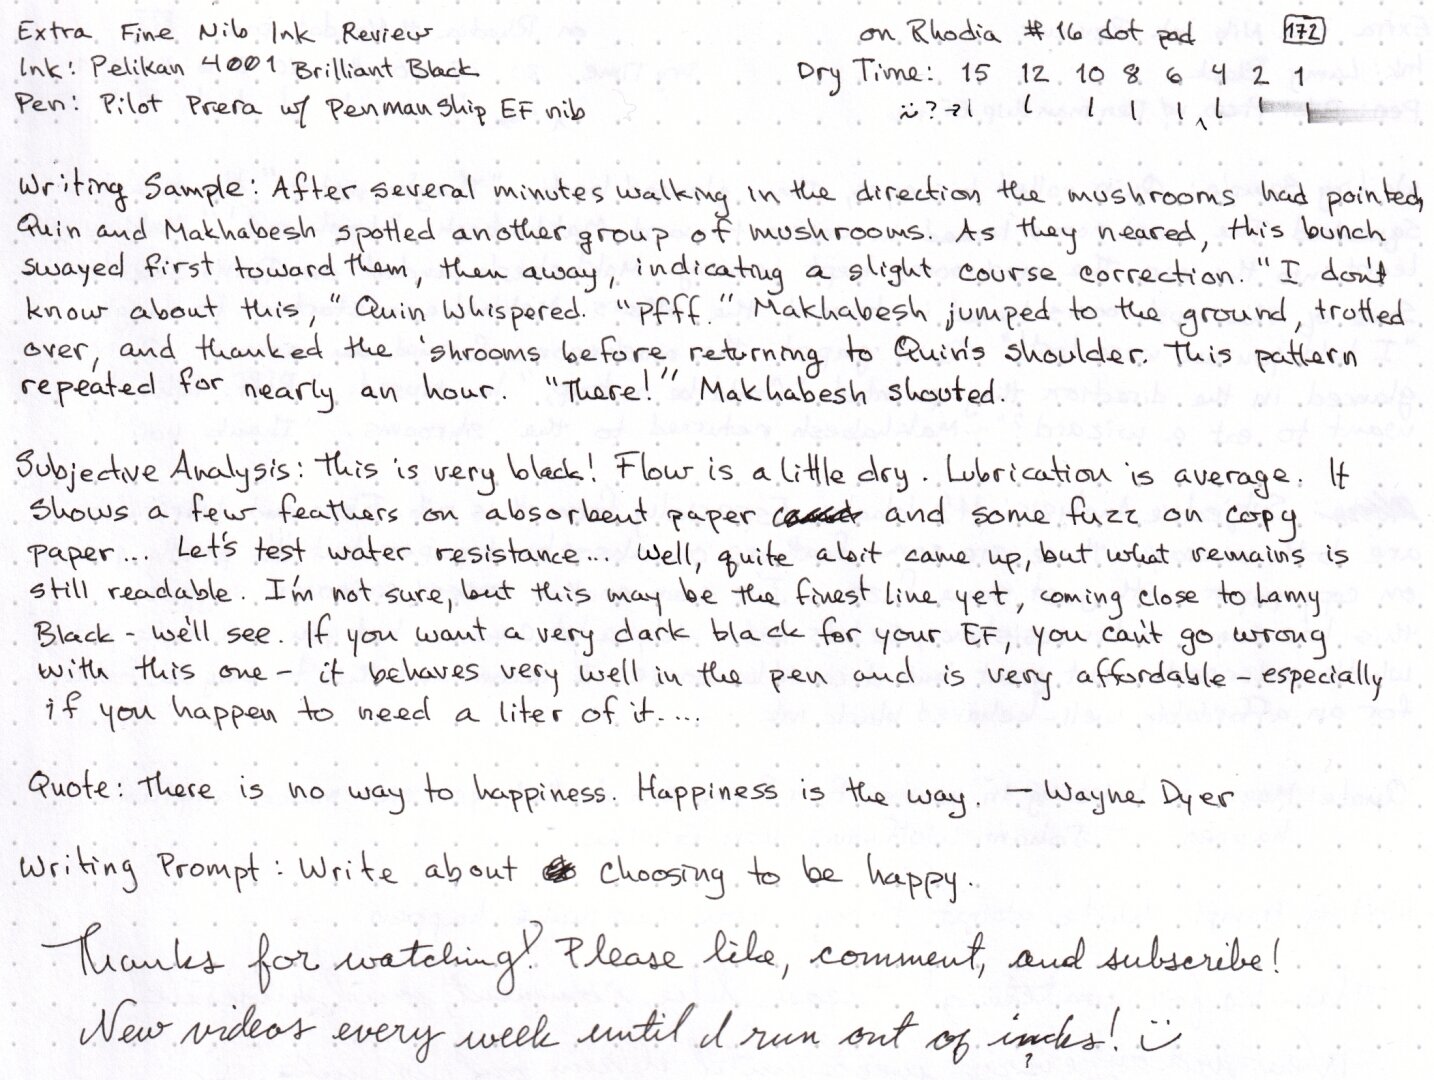 Extra Fine Nib Ink Review
on Rhodia #16 dot pad 172
Ink: Pelikan 4001 Brilliant Black
Dry Time: 15 12 10 8 6 4 2 1
Pen: Pilot Prera w/ Penmanship EF nib
Writing Sample: After several minutes walking in the direction the mushrooms had pointed,
Quin and Makhabesh spotted another group of mushrooms. As they neared, this bunch
swayed first toward them, then away, indicating a slight course correction. "I don't
know about this," Quin whispered. "Pffff." Makhabesh jumped to the ground, trotted
over, and thanked the 'shrooms before returning to Quin's shoulder. This pattern
repeated for nearly an hour. "There!" Makhabesh shouted.
Subjective Analysis: This is very black! Flow is a little dry. Lubrication is average. It
shows a few feathers on absorbent paper and some fuzz on copy
paper... Let's test water resistance... Well, quite a bit came up, but what remains is
still readable. I'm not sure, but this may be the finest line yet, coming close to Lamy
Black - we'll see. If you want a very dark black for your EF, you can't go wrong
with this one - it behaves very well in the pen and is very affordable - especially
if you happen to need a liter of it....
Quote: There is no way to happiness. Happiness is the way. - Wayne Dyer
Writing Prompt: Write about choosing to be happy.
Thanks for watching! Please like, comment, and subscribe!
New videos every week until I run out of inks! :)